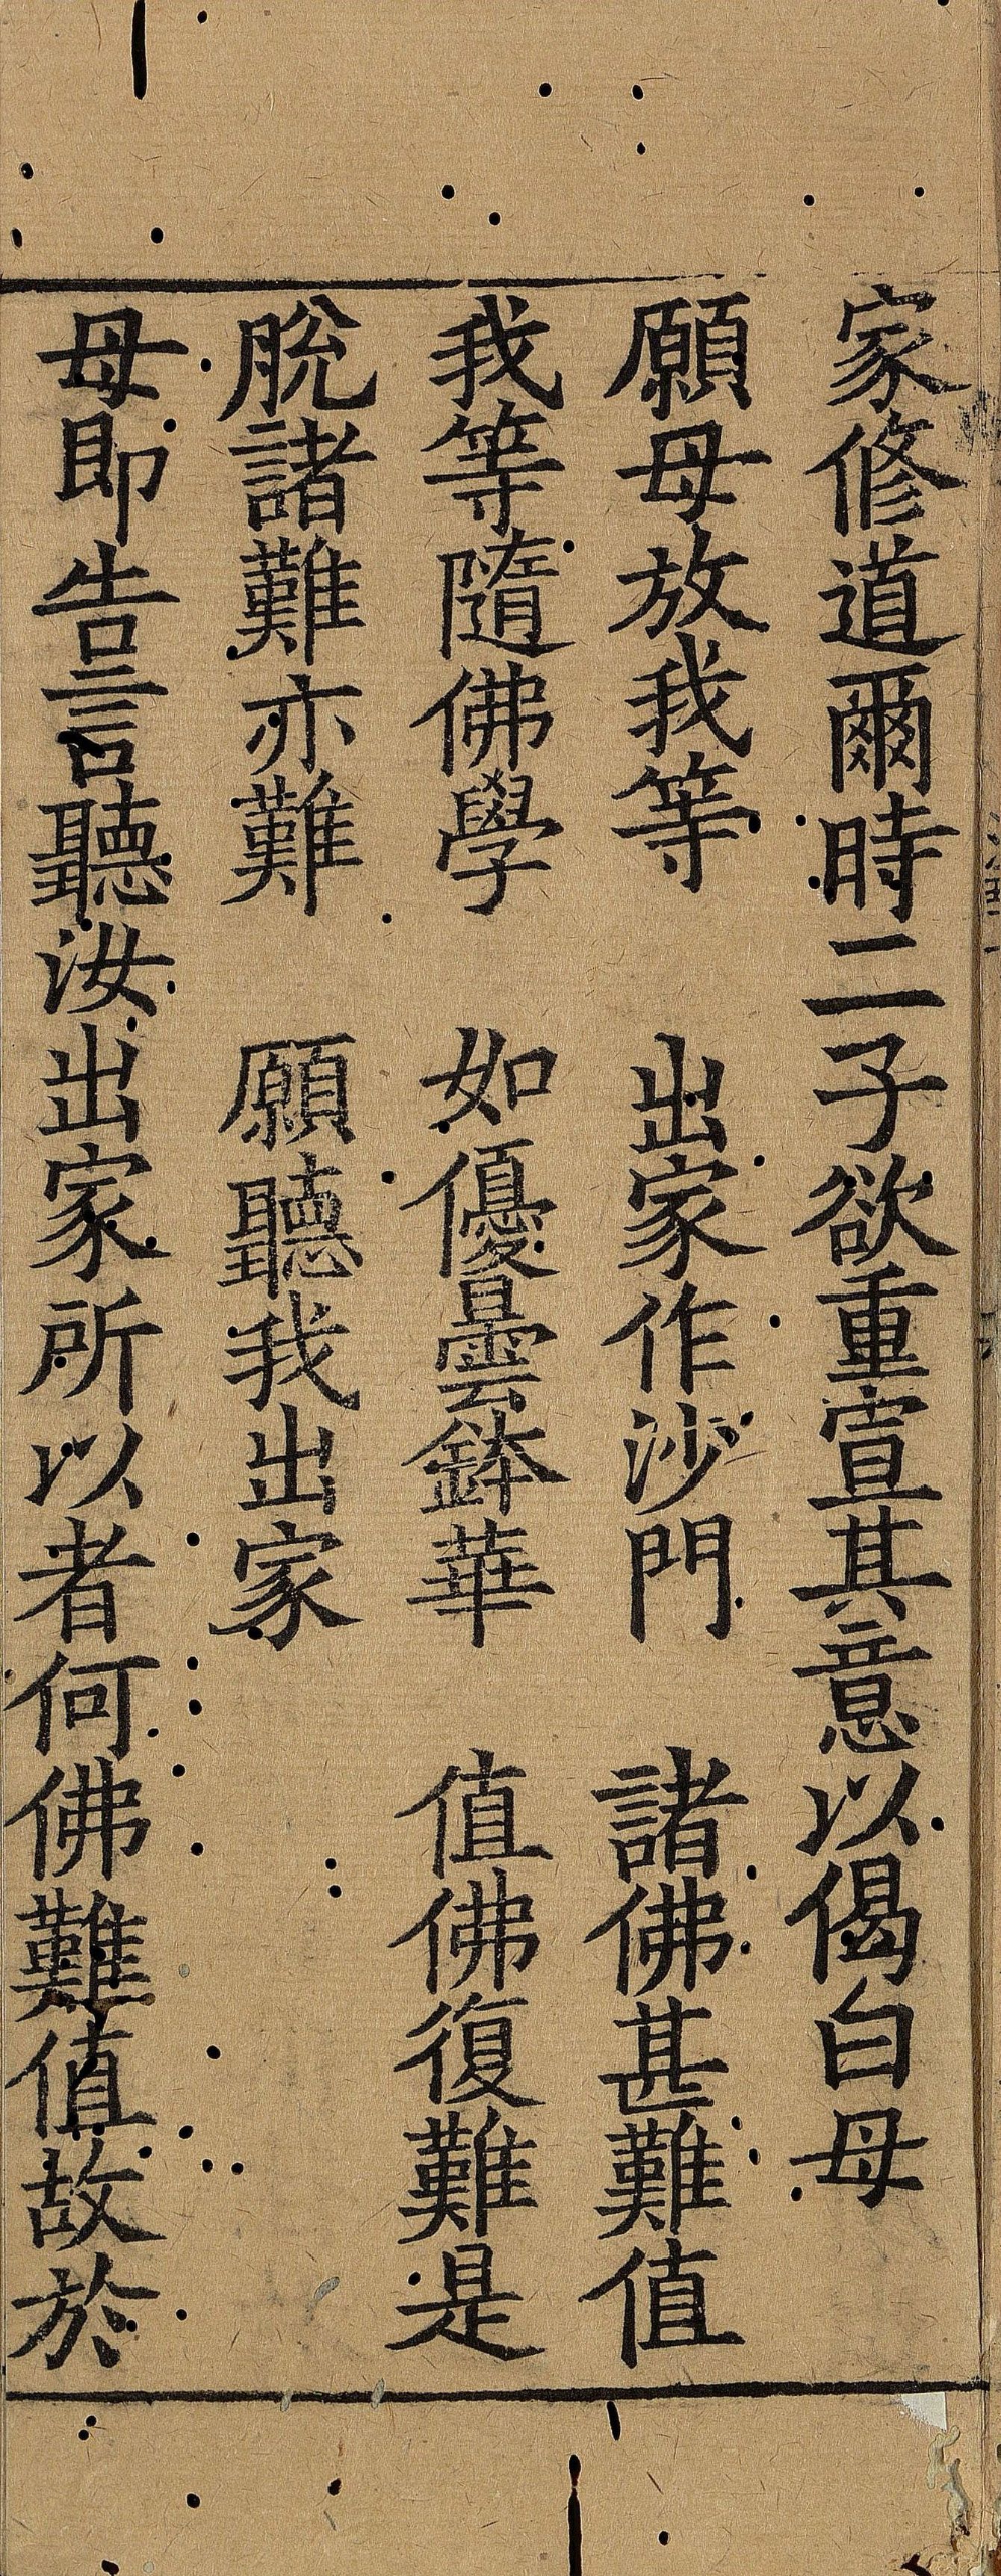 家修道爾時二子欲重宣其意以偈白母
願母放我等　出家作沙門　諸佛甚難值
我等隨佛學　如優曇鉢華　值佛復難是
脫諸難亦難　願聽我出家
母即告言聽汝出家所以者何佛難值故於